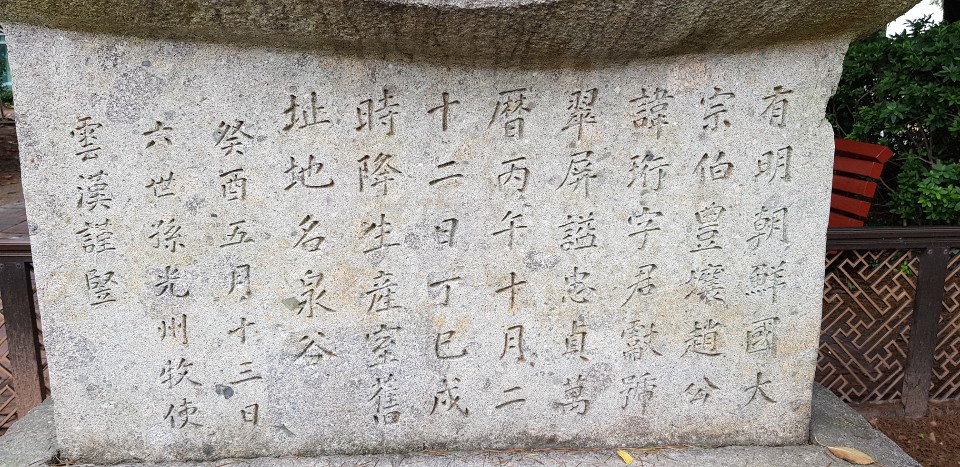 有明朝鮮國大
宗伯豊壤趙公
諱珩字君獻號
翠屏謚忠貞萬
曆丙午十月二
十二日丁巳戌
時降生産室舊
址地名泉谷
癸酉五月十三日
六世孫光州牧使
雲漢謹竪